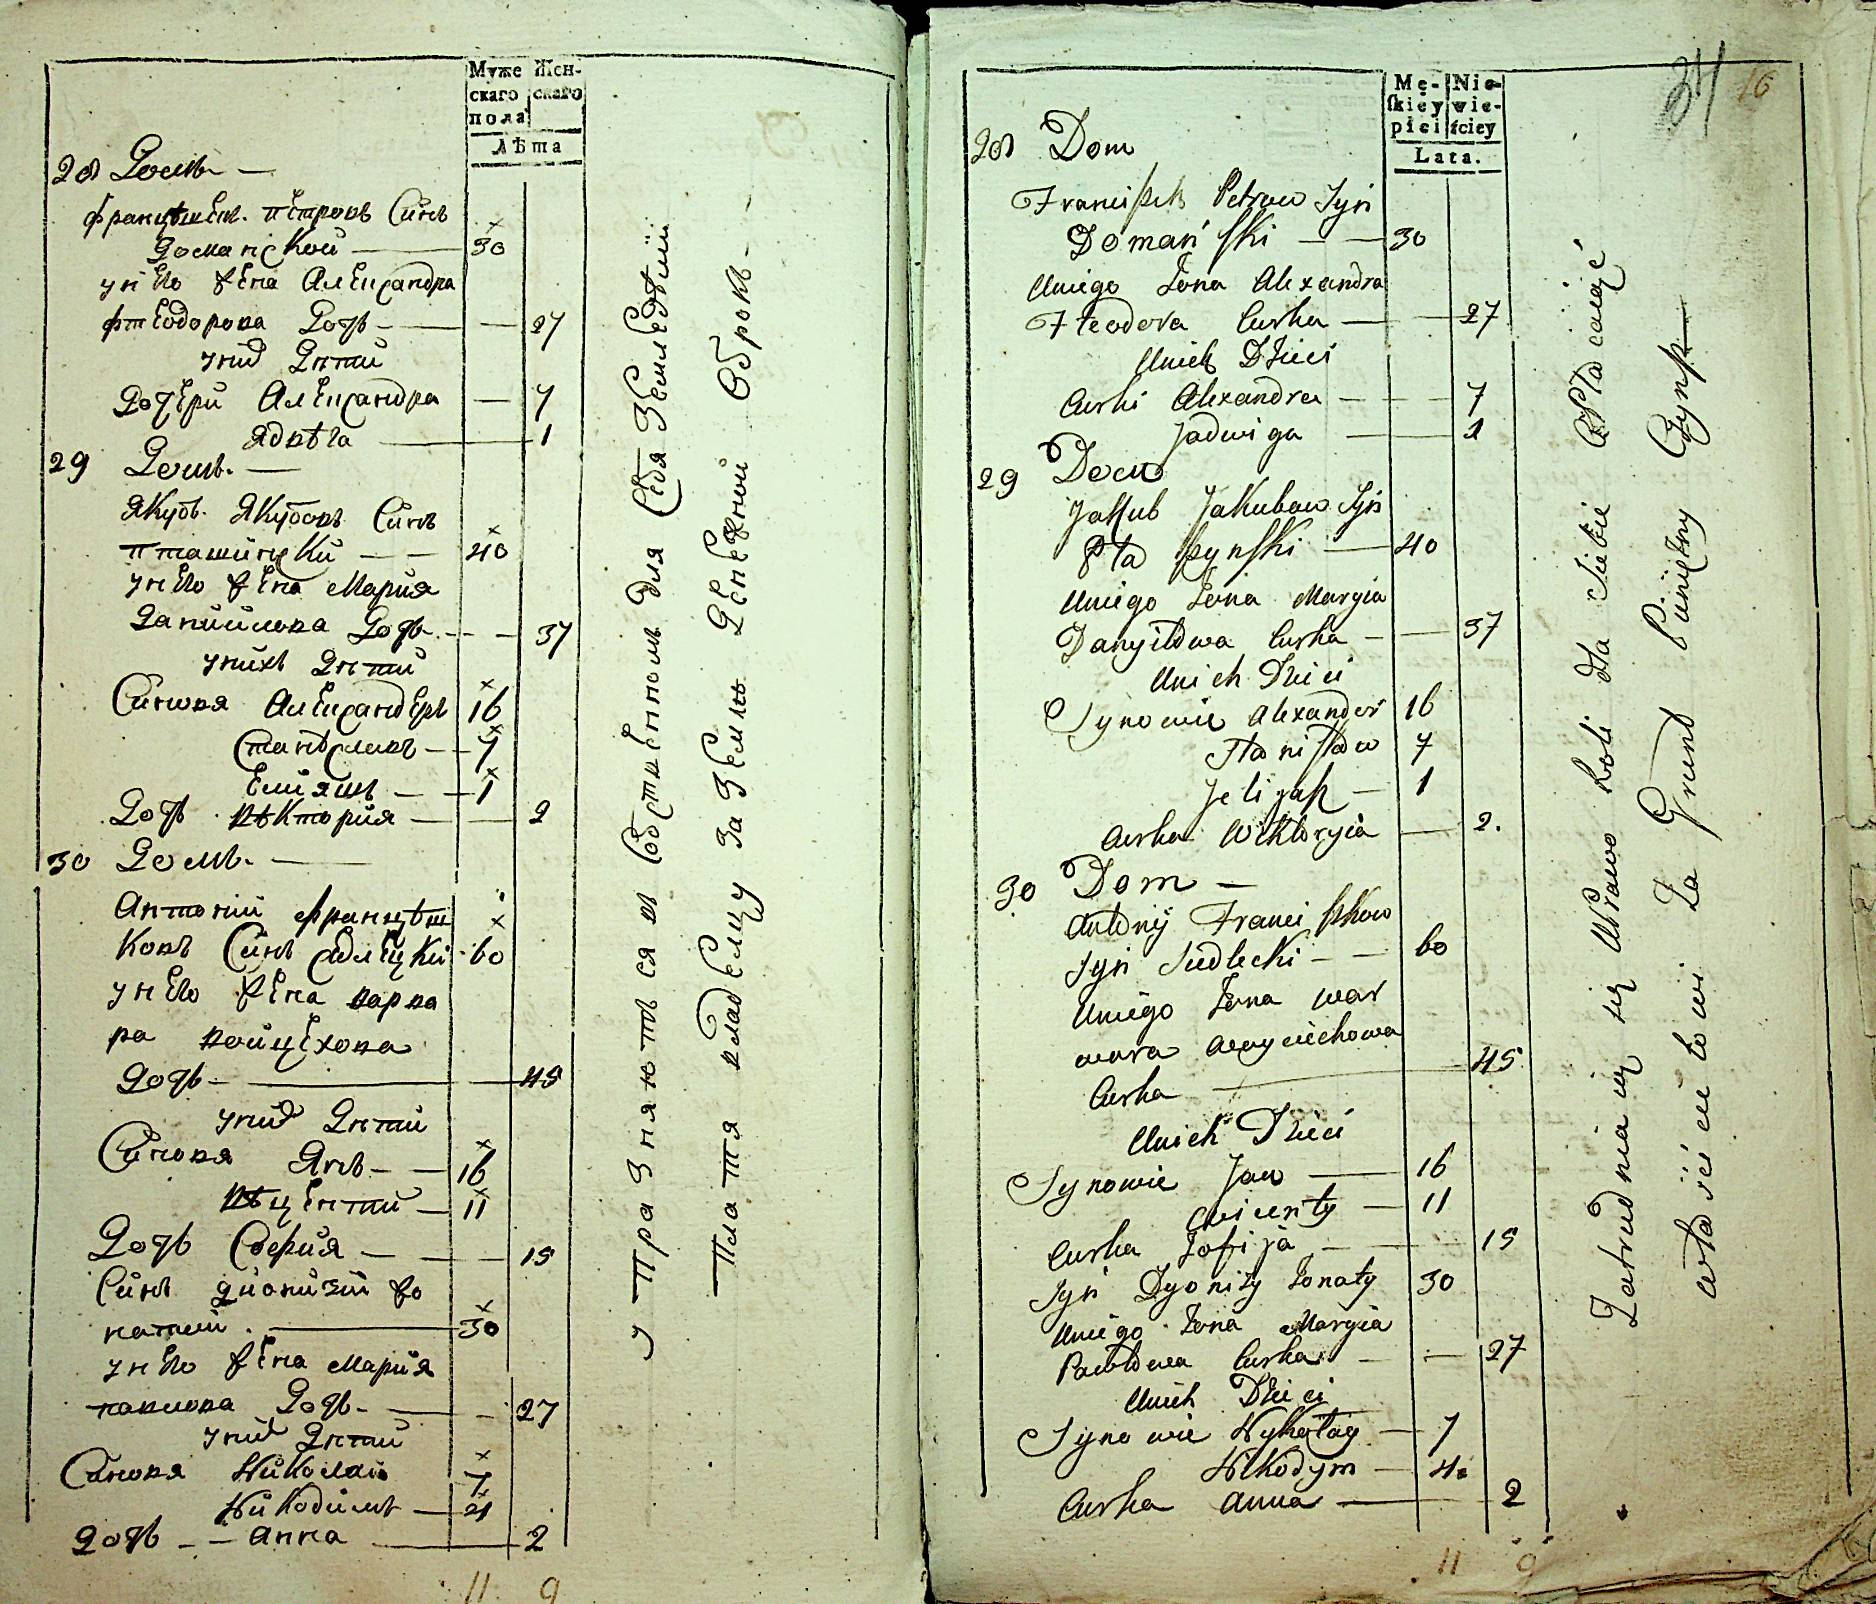 Муже Жен-
скаго скаго
пола
Лѣта
28 Домъ —
Францѣшекъ Петровъ Синъ
Доманской — 30
у него жена Александра
Фтеодорова Дочь — 27
у них Дѣти
Дочери Александра — 7
Ядвѣга — 1
29 Домъ. —
Якубъ Якубовъ Синъ
Пташински — 40
у него жена Мария
Данийлова Дочь — 37
у нихъ Дѣти
Синовя Александеръ 16
Станѣславъ — 7
Елияшъ — 1
Дочь Вѣктория — 2
30 Домъ. —
Антоний Францѣш
ковъ Синъ Садлецки 60
у него жена Варва
ра Войцехова
Дочь — 45
у них Дѣти
Синовя Янъ — 16
Вѣцентий — 11
Дочь София — 15
Синъ Дионизий жо
натий — 30
у него жена Мария
Павлова Дочь — 27
у них Дѣти
Синовя Николай 7
Никодимъ — 4
Дочь — Анна — 2
11 9
упразняются собственномъ для себя Земледѣлии
Платя владелцу за Землю Денежной Оброкъ —
34 16
Mę- Nie-
ſkiey wie-
płci ſciey
Lata.
28 Dom
Franciſzek Petrow Syn
Domań ſki — 30
Uniego Zona Alexandra
Fteodora Curka — 27
Unich Dzieci
Curki Alexandra — 7
Jadwiga — 1
29 Dom
Jakub Jakubow Syn
Pta ſzynſki — 40
Uniego Zona Maryia
Danyiłowa Curka — 37
Unich Dzieci
Synowie Alexander 16
Staniſław 7
Jeliyaſz — 1
Curka Wiktoryia — 2.
30 Dom —
Antoniy Franciſzkow
Syn Sudlecki — 60
Uniego Zona War
wara Woyciechowa
Curka — 45
Unich Dzieci
Synowie Jan — 16
Wicenty — 11
Curka Zofija — 15
Syn Dyonizy Zonaty 30
Uniego Zona Maryia
Pawłowa Curka — 27
Unich Dzieci
Synowie Nykołay — 7
Nikodym — 4
Curka Anna — 2
11 9
Zatrudniaią się Uprawo Roli dla Siebie Płacaiąć
właściciełowi Za Grunt Pünięzny Czynſz